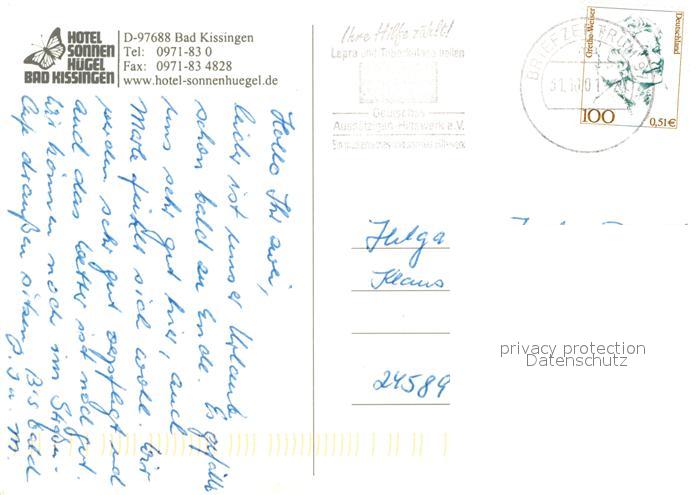 HOTEL
SONNEN
HÜGEL
BAD KISSINGEN
D-97688 Bad Kissingen
Tel: 0971-83 0
Fax: 0971-83 4828
www.hotel-sonnenhuegel.de
Ihre Hilfe zählt!
Lepra und Tuberkulose heilen
Deutsches
Aussätzigen-Hilfswerk e.V.
BRIEFZENTRUM
31.10.01
Grethe Weiser
Deutschland
100
0,51€
Hallo Ihr zwei,
leider ist unser Urlaub
schon bald zu Ende. Es gefällt
uns sehr gut hier, auch
Marle fühlt sich wohl. Wir
werden sehr gut verpflegt und
auch das Wetter ist noch gut.
Wir können noch im Straßen-
Cafe draußen sitzen. Bis bald
J. u. M.
Helga
Klaus
24589
privacy protection
Datenschutz